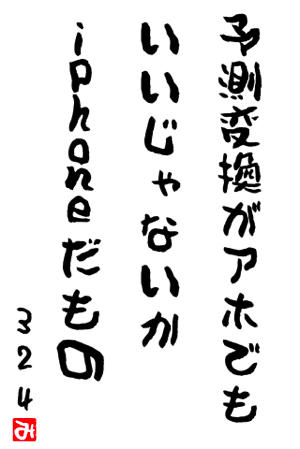 予測変換がアホでも
いいじゃないか
iphoneだもの
324
み